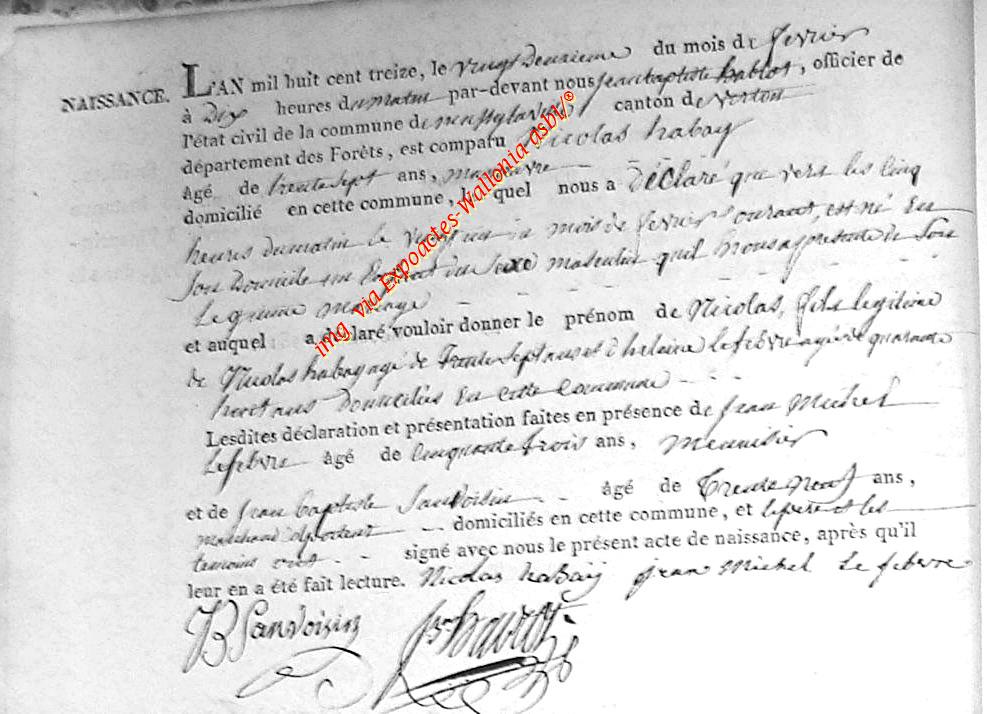 NAISSANCE. L'AN mil huit cent treize, le vingt deuxieme du mois de fevrier
à Dix heures du matin par-devant nous jean baptiste , officier de
l'état civil de la commune de canton de virton
département des Forêts, est comparu Nicolas habay
âgé de trente sept ans, manoeuvre
domicilié en cette commune, lequel nous a Déclaré que vers les cinq
heures du matin le vingt un mois de fevrier courant, est né en
son Domicile un Enfant du sexe masculin qu'il nous a presenté de son
Legitime mariage
et auquel a déclaré vouloir donner le prénom de Nicolas, fils legitime
de Nicolas habay agé de Trente sept ans et d'helaine Lefebvre agée de quarante
huit ans Domiciliés En cette Commune
Lesdites déclaration et présentation faites en présence de jean Michel
Lefebvre âgé de cinquante trois ans, Menuisier
et de jean baptiste Sandoisin âgé de Trente neuf ans,
marchand domiciliés en cette commune, et le pere et les
temoins ont signé avec nous le présent acte de naissance, après qu'il
leur en a été fait lecture. Nicolas habaÿ jean Michel Le febvre
JB Sandoisin
img via Expoactes-Wallonia asbl/®